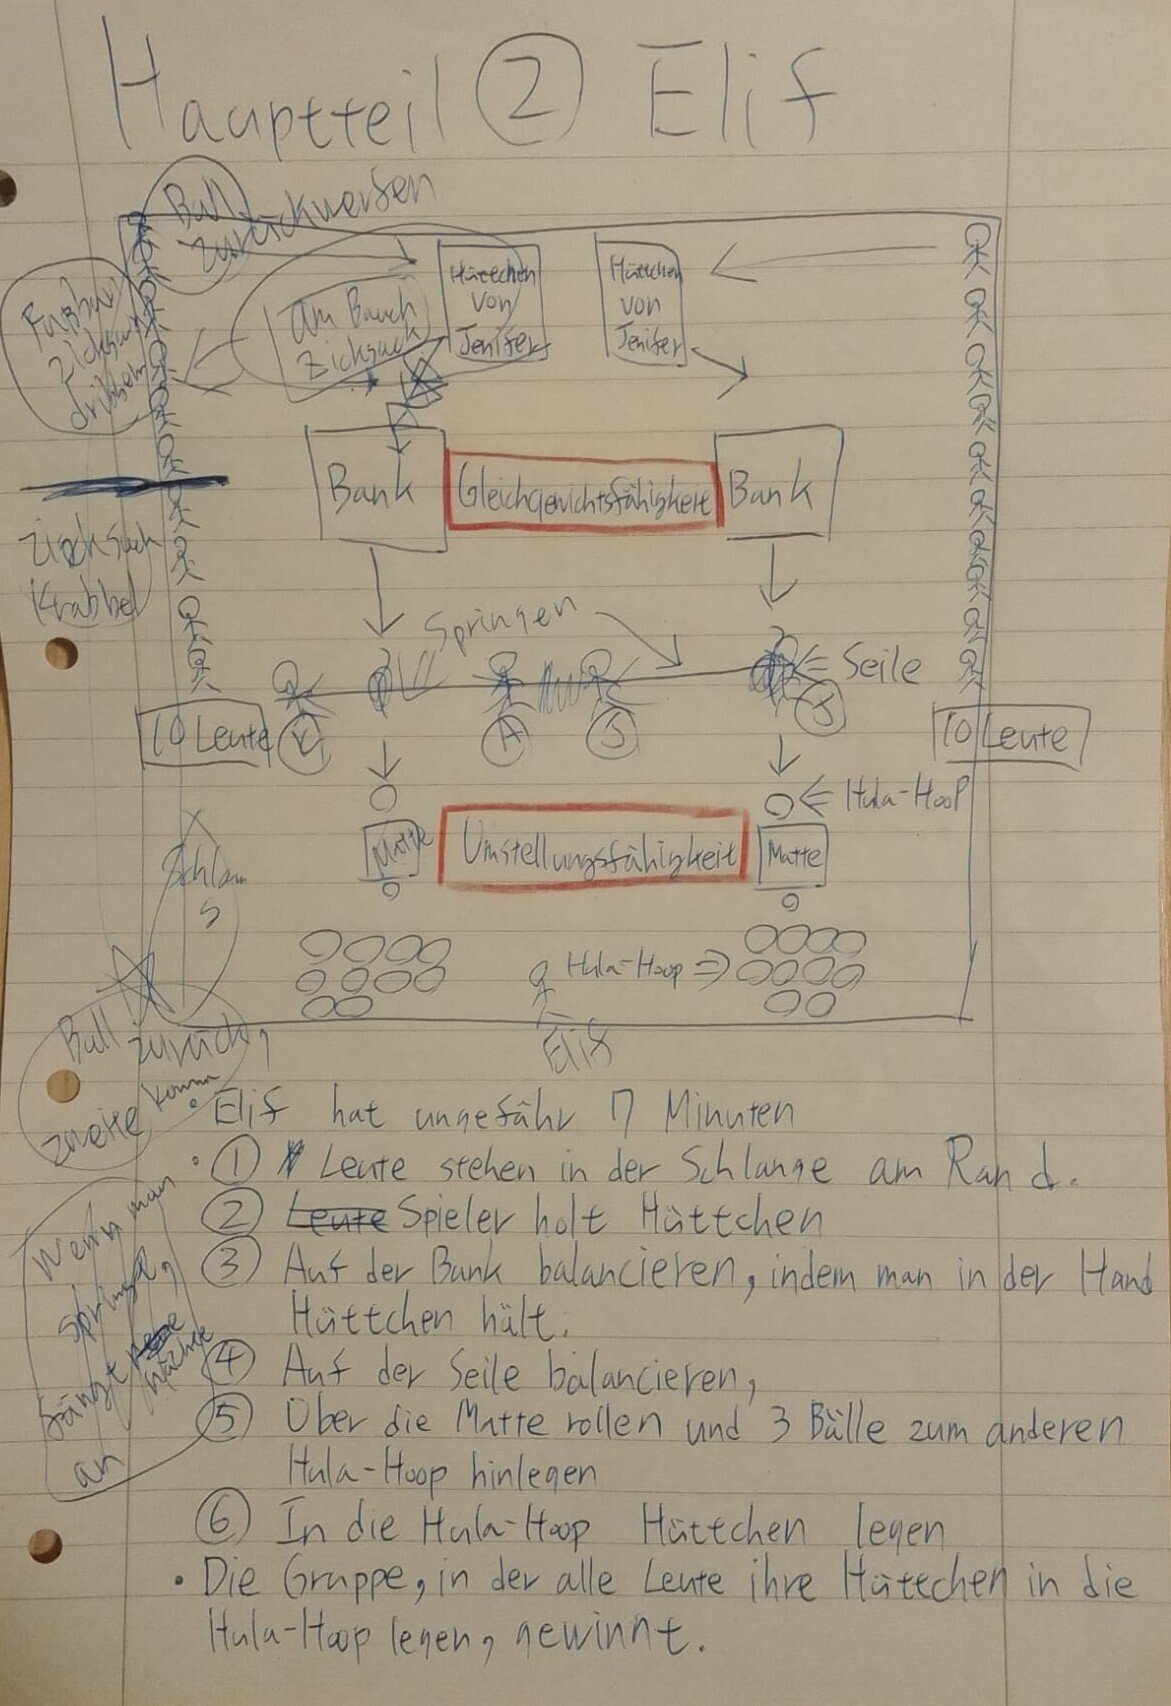 Hauptteil 2 Elif
Ball
zurückwerfen
Fußball
Zicksack
dribbeln
am Bauch
Zicksack
Hüttchen
von
Jenifer
Hüttchen
von
Jenifer
Bank
Gleichgewichtsfähigkeit
Bank
Zicksack
Krabbel
Springen
Seile
10 Leute
K
A
S
J
10 Leute
Hula-Hoop
Matte
Umstellungsfähigkeit
Matte
Schlan
Hula-Hoop
Elif
Ball zurück,
komm
zweite
• Elif hat ungefähr 7 Minuten
• 1 Leute stehen in der Schlange am Rand.
2 Leute Spieler holt Hüttchen
3 Auf der Bank balancieren, indem man in der Hand
Hüttchen hält.
4 Auf der Seile balancieren,
5 Über die Matte rollen und 3 Bälle zum anderen
Hula-Hoop hinlegen
6 In die Hula-Hoop Hüttchen legen
• Die Gruppe, in der alle Leute ihre Hüttchen in die
Hula-Hoop legen, gewinnt.
Wenn man
springt,
fängt nächste
an